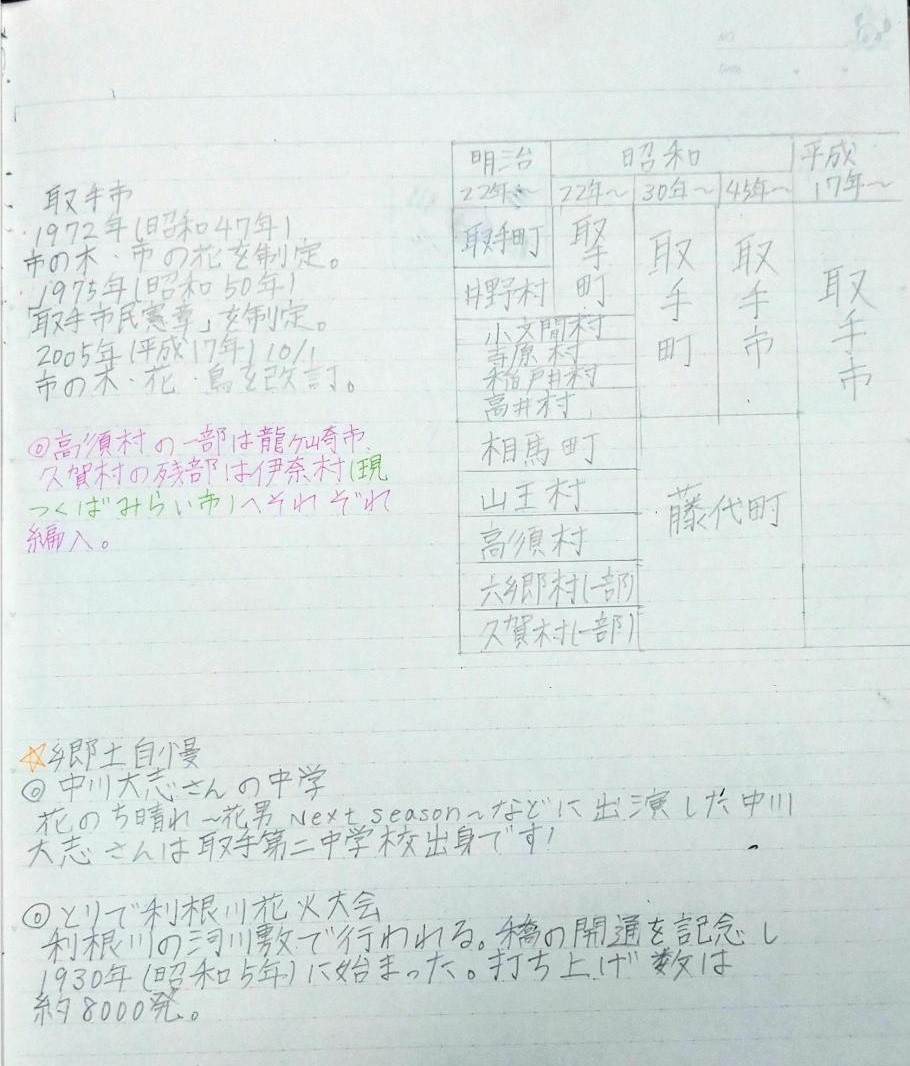 取手市
1972年(昭和47年)
市の木・市の花を制定。
1975年(昭和50年)
「取手市民憲章」を制定。
2005年(平成17年)10/1
市の木・花・鳥を改訂。
◎高須村の一部は龍ヶ崎市、
久賀村の残部は伊奈村(現
つくばみらい市)へそれぞれ
編入。
明治 昭和 平成
22年～ 22年～ 30年～ 45年～ 17年～
取手町
井野村
小文間村
寺原村
稲戸井村
高井村
相馬町
山王村
高須村
六郷村(一部)
久賀村(一部)
取手町
取手町
取手市
藤代町
取手市
☆郷土自慢
◎中川大志さんの中学
花のち晴れ～花男 Next season～などに出演した中川
大志さんは取手第二中学校出身です!
◎とりで利根川花火大会
利根川の河川敷で行われる。橋の開通を記念し
1930年(昭和5年)に始まった。打ち上げ数は
約8000発。